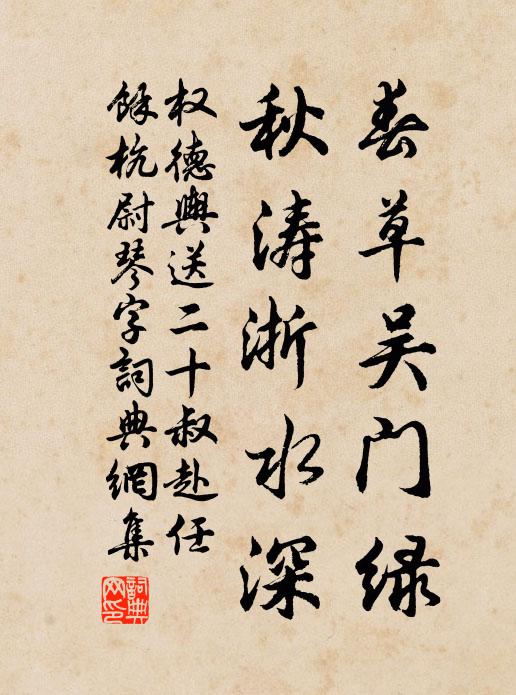 春草吴门绿
秋涛浙水深
权德舆送二十叔赴任
馀杭尉琴字词典網集
詞典网印